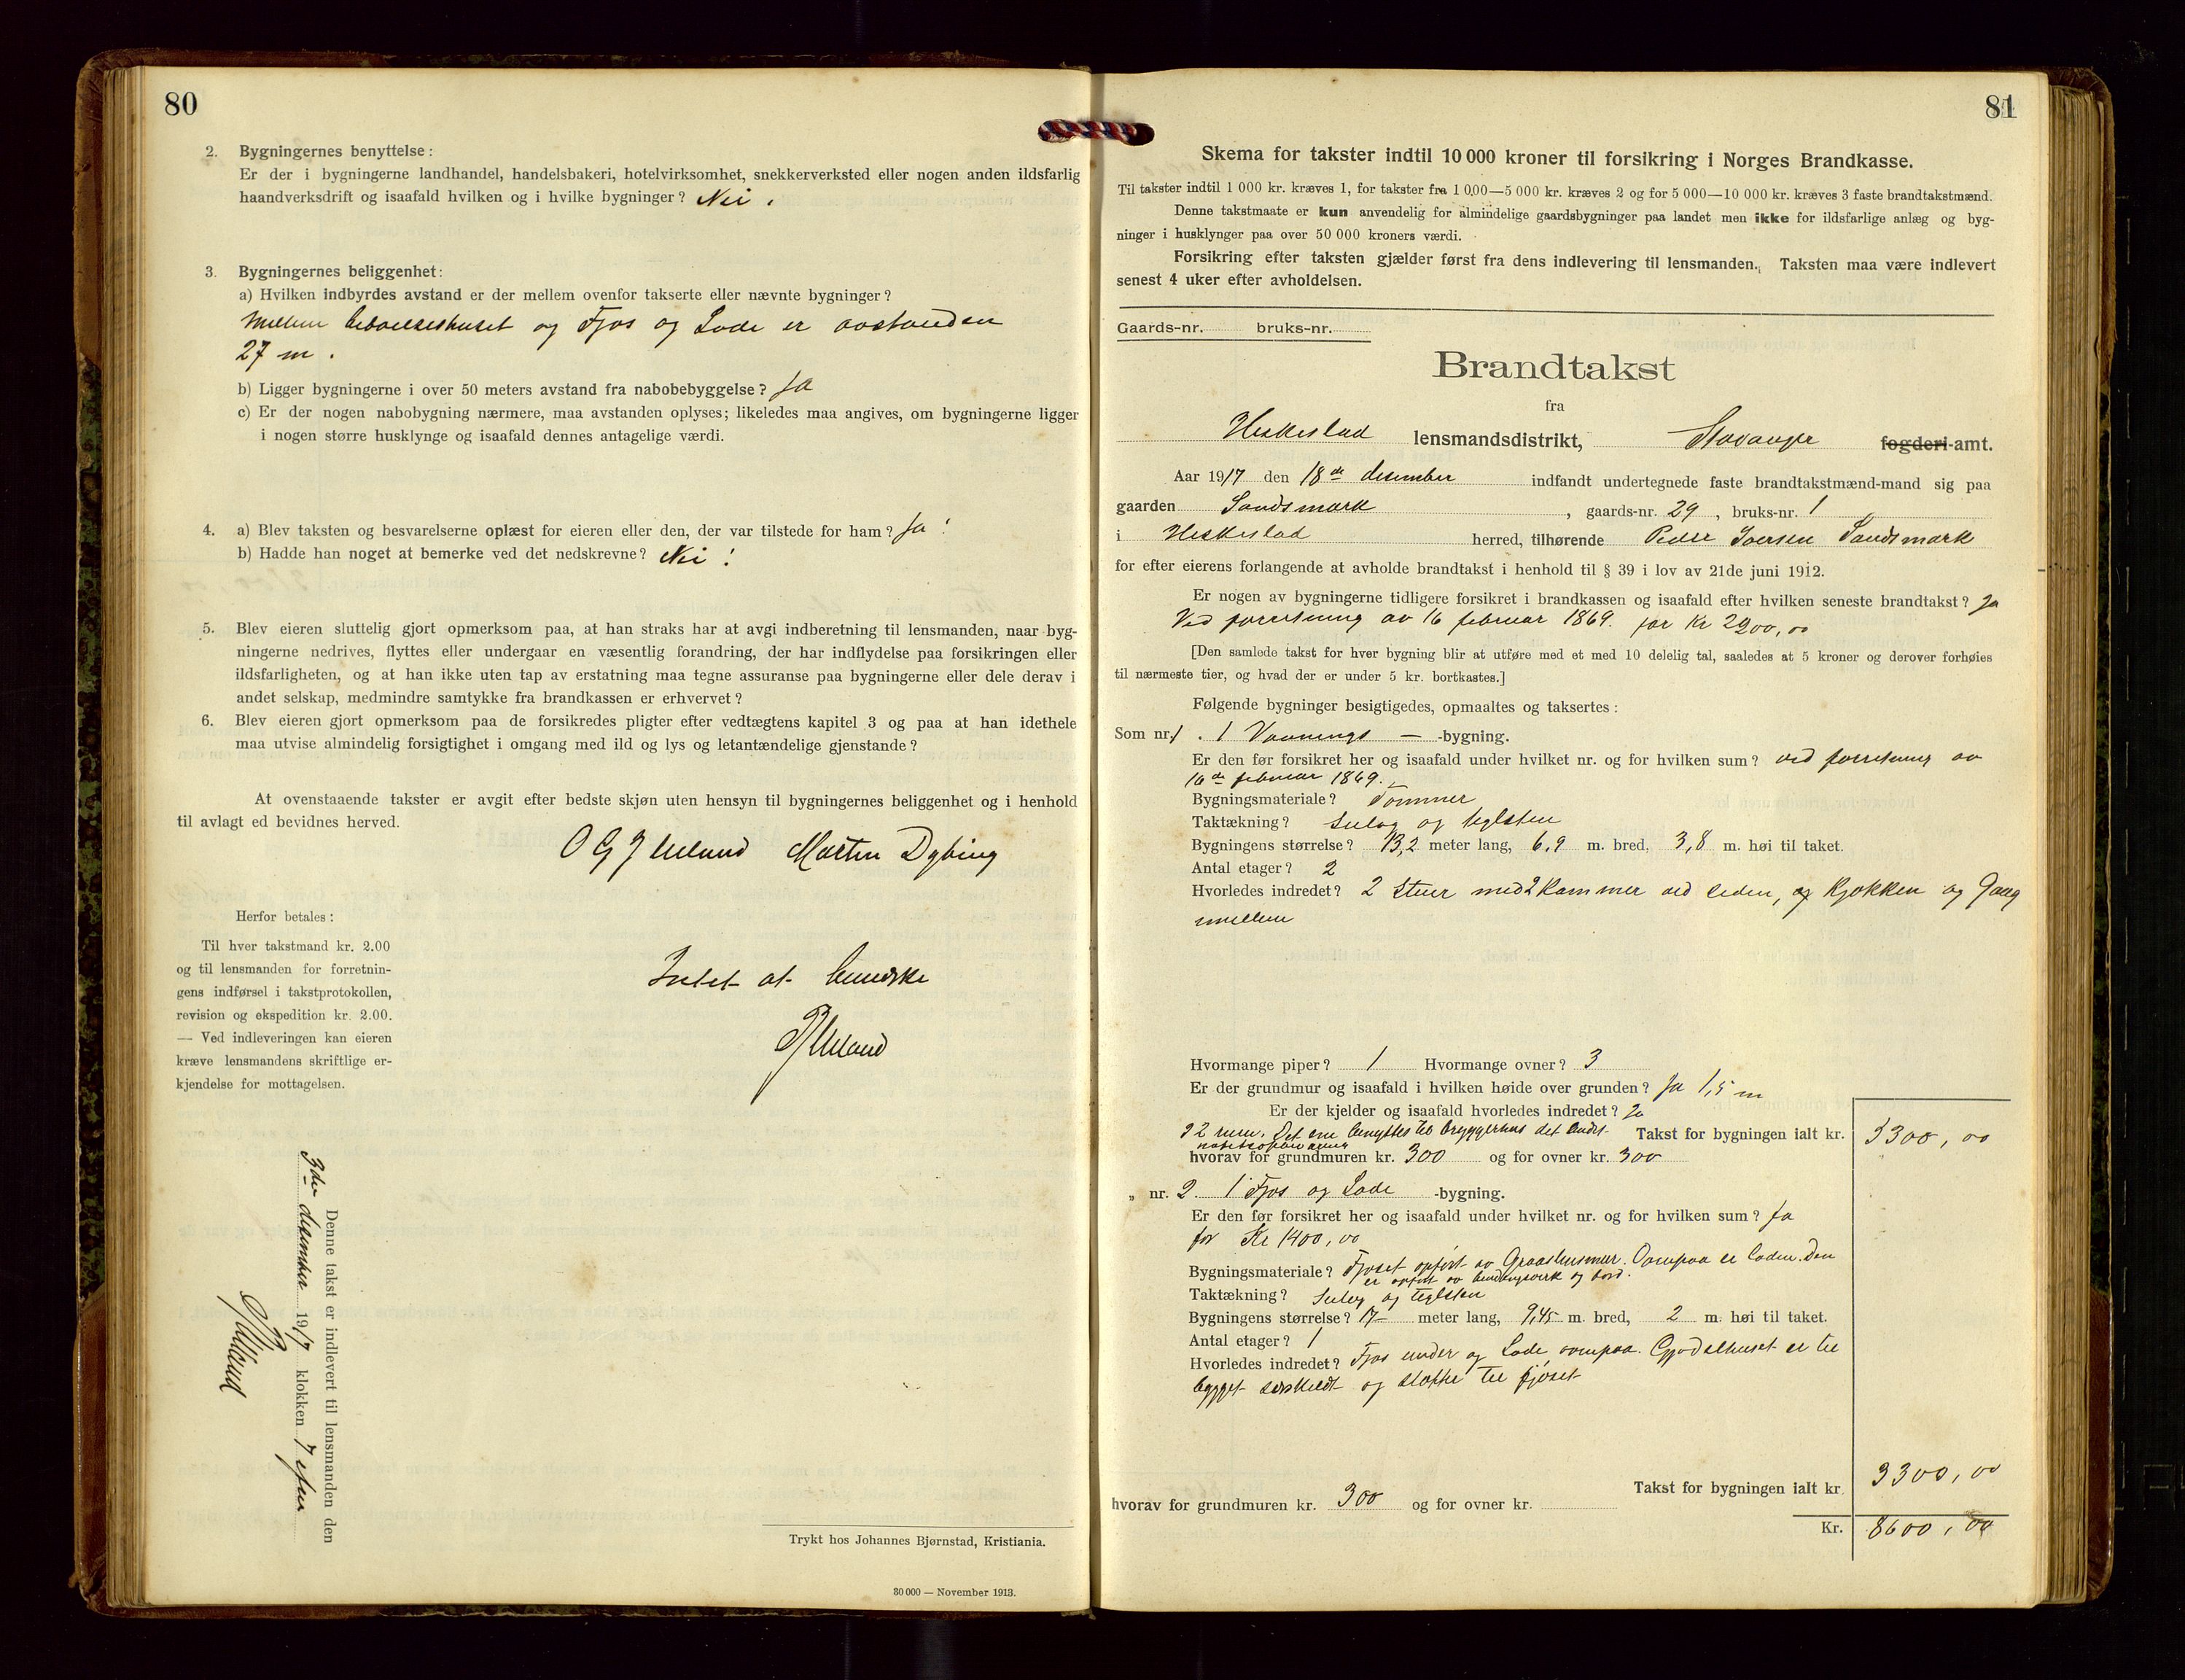 80
2. Bygningernes benyttelse:
Er der i bygningerne landhandel, handelsbakeri, hotelvirksomhet, snekkerverksted eller nogen anden ildsfarlig
haandverksdrift og isaafald hvilken og i hvilke bygninger? Nei.
3. Bygningernes beliggenhet:
a) Hvilken indbyrdes avstand er der mellem ovenfor takserte eller nævnte bygninger?
Mellem beboelseshuset og Fjøs og Lade er avstanden
27 m.
b) Ligger bygningerne i over 50 meters avstand fra nabobebyggelse? Ja
c) Er der nogen nabobygning nærmere, maa avstanden oplyses; likeledes maa angives, om bygningerne ligger
i nogen større husklynge og isaafald dennes antagelige værdi.
4. a) Blev taksten og besvarelserne oplæst for eieren eller den, der var tilstede for ham? Ja!
b) Hadde han noget at bemerke ved det nedskrevne? Nei!
5. Blev eieren sluttelig gjort opmerksom paa, at han straks har at avgi indberetning til lensmanden, naar byg-
ningerne nedrives, flyttes eller undergaar en væsentlig forandring, der har indflydelse paa forsikringen eller
ildsfarligheten, og at han ikke uten tap av erstatning maa tegne assuranse paa bygningerne eller dele derav i
andet selskap, medmindre samtykke fra brandkassen er erhvervet?
6. Blev eieren gjort opmerksom paa de forsikredes pligter efter vedtægtens kapitel 3 og paa at han idethele
maa utvise almindelig forsigtighet i omgang med ild og lys og letantændelige gjenstande?
At ovenstaaende takster er avgit efter bedste skjøn uten hensyn til bygningernes beliggenhet og i henhold
til avlagt ed bevidnes herved.
O G Ueland Morten Dybing
Herfor betales:
Til hver takstmand kr. 2.00
og til lensmanden for forretnin-
gens indførsel i takstprotokollen,
revision og ekspedition kr. 2.00.
— Ved indleveringen kan eieren
kræve lensmandens skriftlige er-
kjendelse for mottagelsen.
Intet at bemerke
Ueland
Denne takst er indlevert til lensmanden den
desember 1917 klokken 7 efm
Ueland
Trykt hos Johannes Bjørnstad, Kristiania.
30 000 — November 1913.
81
Skema for takster indtil 10 000 kroner til forsikring i Norges Brandkasse.
Til takster indtil 1 000 kr. kræves 1, for takster fra 1 000—5 000 kr. kræves 2 og for 5 000—10 000 kr. kræves 3 faste brandtakstmænd.
Denne takstmaate er kun anvendelig for almindelige gaardsbygninger paa landet men ikke for ildsfarlige anlæg og byg-
ninger i husklynger paa over 50 000 kroners værdi.
Forsikring efter taksten gjælder først fra dens indlevering til lensmanden. Taksten maa være indlevert
senest 4 uker efter avholdelsen.
Gaards-nr. bruks-nr.
Brandtakst
fra
Heskestad lensmandsdistrikt, Stavanger fogderi-amt.
Aar 1917 den 18de desember indfandt undertegnede faste brandtakstmænd-mand sig paa
gaarden Sandsmark, gaards-nr. 29, bruks-nr. 1
i Heskestad herred, tilhørende Peder Iversen Sandsmark
for efter eierens forlangende at avholde brandtakst i henhold til § 39 i lov av 21de juni 1912.
Er nogen av bygningerne tidligere forsikret i brandkassen og isaafald efter hvilken seneste brandtakst? Ja
Ved forretning av 16 februar 1869. for Kr 2200,00
[Den samlede takst for hver bygning blir at utføre med et med 10 delelig tal, saaledes at 5 kroner og derover forhøies
til nærmeste tier, og hvad der er under 5 kr. bortkastes.]
Følgende bygninger besigtigedes, opmaaltes og taksertes:
Som nr. 1. 1 Vaanings — -bygning.
Er den før forsikret her og isaafald under hvilket nr. og for hvilken sum? ved forretning av
16de februar 1869.
Bygningsmateriale? Tømmer
Taktækning? Sulag og teglsten
Bygningens størrelse? 13,2 meter lang, 6,9 m. bred, 3,8 m. høi til taket.
Antal etager? 2
Hvorledes indredet? 2 Stuer med 2 Kammer ved siden, og Kjøkken og Gang
mellem
Hvormange piper? 1 Hvormange ovner? 3
Er der grundmur og isaafald i hvilken høide over grunden? Ja 1,5 m
Er der kjelder og isaafald hvorledes indredet? Ja
2 rum. Det ene benyttes til bryggerhus det andet Takst for bygningen ialt kr. 5300,00
hvorav for grundmuren kr. 300 og for ovner kr. 300
„ nr. 2. 1 Fjøs og Lade -bygning.
Er den før forsikret her og isaafald under hvilket nr. og for hvilken sum? Ja
for Kr 1400,00
Bygningsmateriale? Fjøset opført av Graastensmur. Ovenpaa er laden. Den
er opført av bindingsverk og bord.
Taktækning? Sulag og teglsten
Bygningens størrelse? 17 meter lang, 9,45 m. bred, 2 m. høi til taket.
Antal etager? 1
Hvorledes indredet? Fjøs under og Lade ovenpaa. Gjødselhuset er til
bygget særskildt og støtter til fjøset
Takst for bygningen ialt kr. 3300,00
hvorav for grundmuren kr. 300 og for ovner kr.
Kr. 8600,00